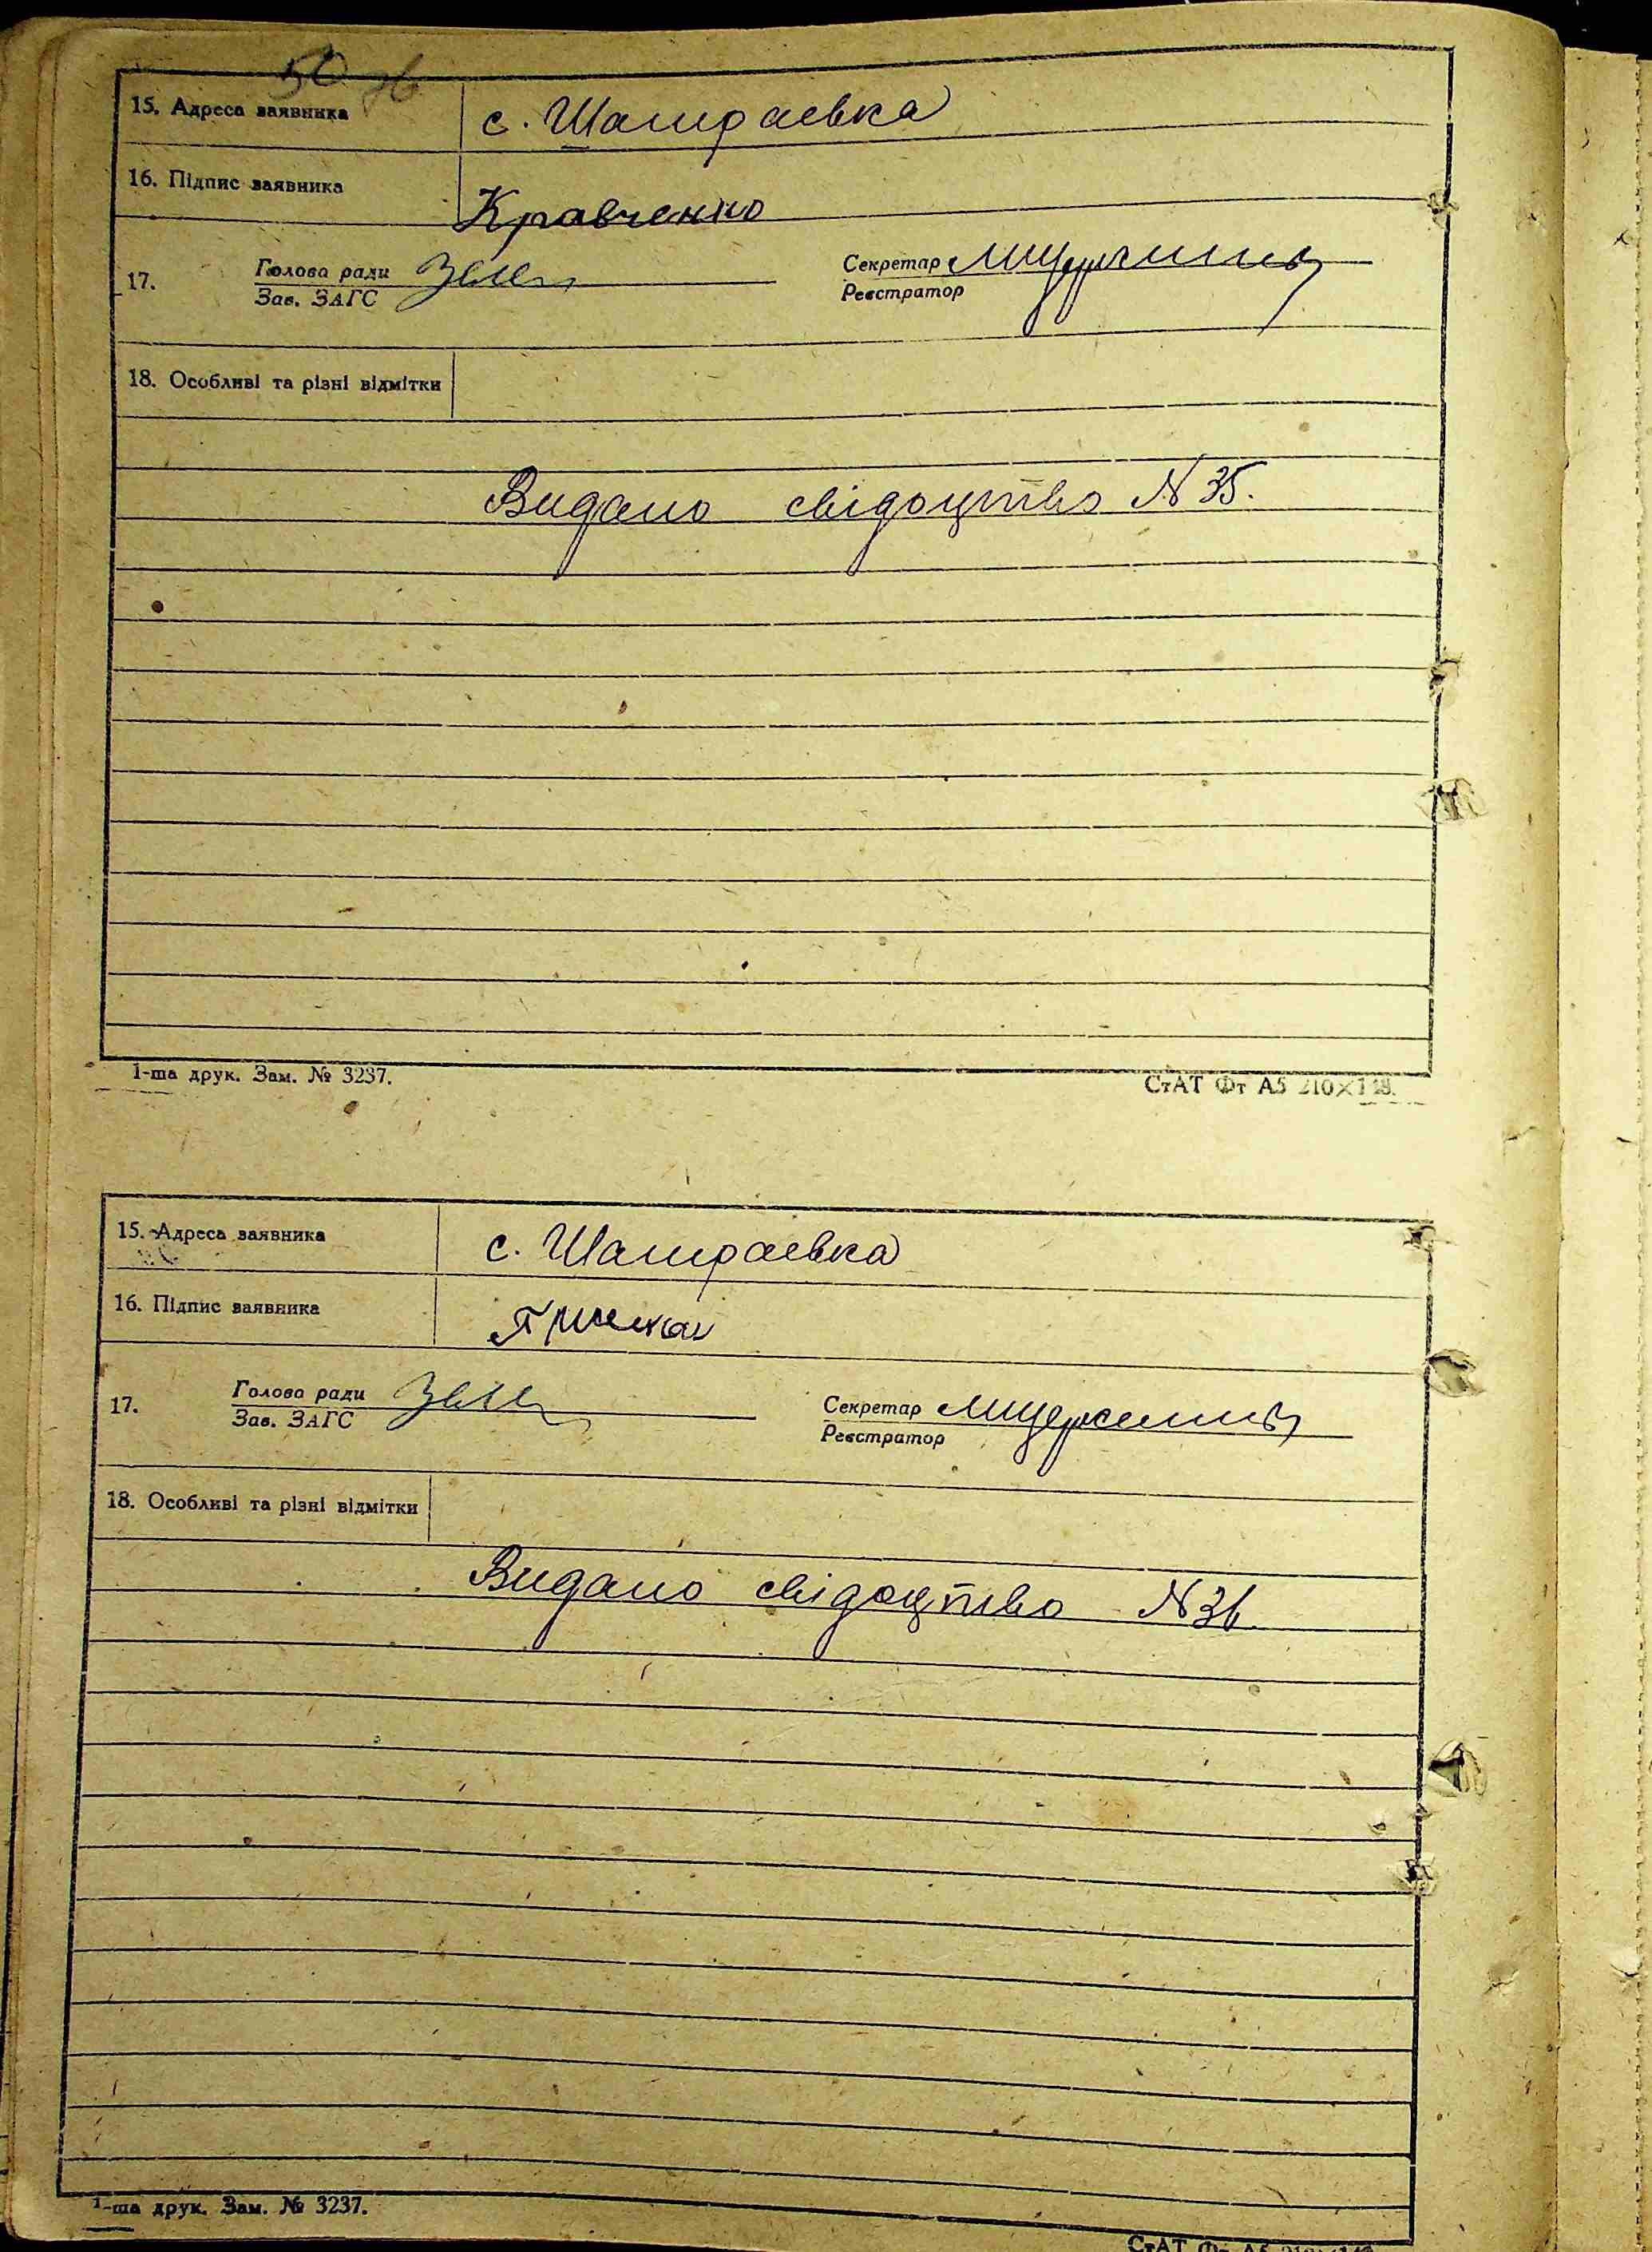 50 зв
15. Адреса заявника с. Шамраевка
16. Підпис заявника Кравченко
17. Голова ради Секретар
Зав. ЗАГС Реєстратор
18. Особливі та різні відмітки
Видано свідоцтво N 35.
1-ша друк. Зам. № 3237. СтАТ Фт А5 210×148.
15. Адреса заявника с. Шамраевка
16. Підпис заявника
17. Голова ради Секретар
Зав. ЗАГС Реєстратор
18. Особливі та різні відмітки
Видано свідоцтво N 36.
1-ша друк. Зам. № 3237.
СтАТ Фт А5 210×148.